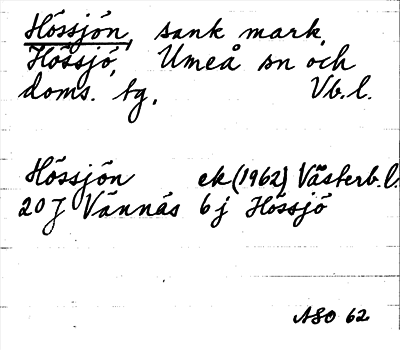 Hössjön, sank mark,
Hössjö, Umeå sn och
doms. tg. Vb.l.
Hössjön ek (1962) Västerb.l.
20 J Vännäs 6 j Hössjö
ASO 62